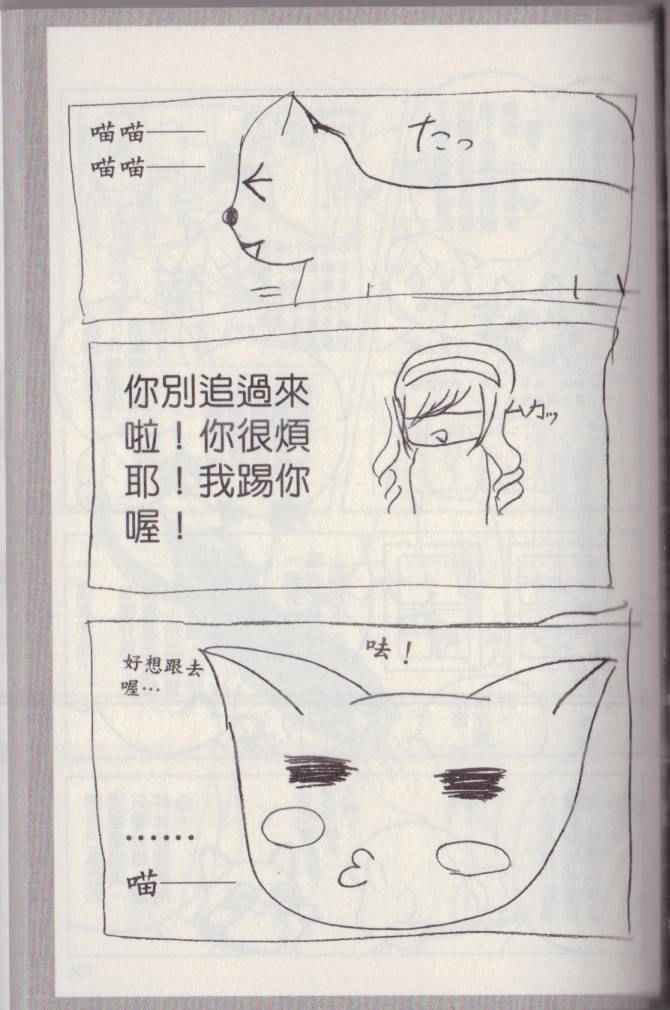 喵喵——
喵喵——
たっ
你別追過來
啦！你很煩
耶！我踢你
喔！
ムカッ
呿！
好想跟去
喔…
……
喵——